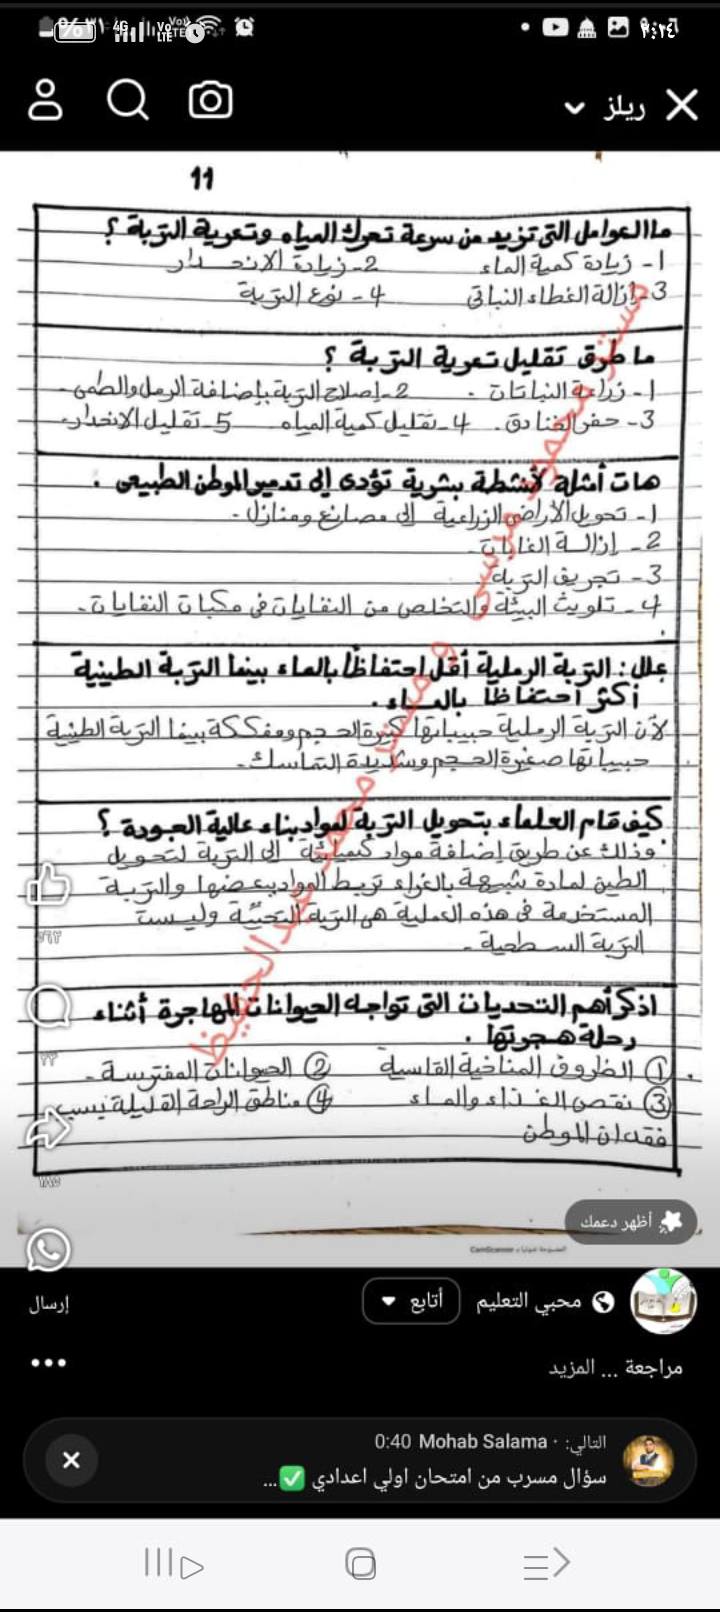 4G
Vo LTE
٩:٠٦
ريلز
11
ما العوامل التى تزيد من سرعة تحرك المياه وتعرية التربة ؟
1- زيادة كمية الماء 2- زيادة الانحدار
3- إزالة الغطاء النباتى 4- نوع التربة
ما طرق تقليل تعرية التربة ؟
1- زراعة النباتات . 2- إصلاح التربة بإضافة الرمل والطمى.
3- حفر الخنادق. 4- تقليل كمية المياه 5- تقليل الانحدار.
هات أمثلة لأنشطة بشرية تؤدى إلى تدمير الموطن الطبيعى .
1- تحويل الأراضى الزراعية إلى مصانع ومنازل.
2- إزالة الغابات.
3- تجريف التربة
4- تلويث البيئة والتخلص من النفايات فى مكبات النفايات.
علل : التربة الرملية أقل احتفاظًا بالماء بينما التربة الطينية
أكثر احتفاظًا بالماء .
لأن التربة الرملية حبيباتها كبيرة الحجم ومفككة بينما التربة الطينية
حبيباتها صغيرة الحجم وشديدة التماسك.
كيف قام العلماء بتحويل التربة لمواد بناء عالية الجودة ؟
وذلك عن طريق إضافة مواد كيميائية إلى التربة لتحويل
الطين لمادة شبيهة بالغراء تربط المواد ببعضها والتربة
المستخدمة فى هذه العملية هى التربة التحتية وليست
التربة السطحية .
اذكر أهم التحديات التى تواجه الحيوانات المهاجرة أثناء
رحلة هجرتها .
① الظروف المناخية القاسية ② الحيوانات المفترسة .
③ نقص الغذاء والماء ④ مناطق الراحة القليلة بسبب
فقدان الموطن
مستر محمود مرسى و مستر محمد عبدالحفيظ
٢٣
CamScanner
أظهر دعمك
إرسال
محبي التعليم
أتابع
مراجعة ... المزيد
التالي: · Mohab Salama 0:40
سؤال مسرب من امتحان اولي اعدادي ✅...